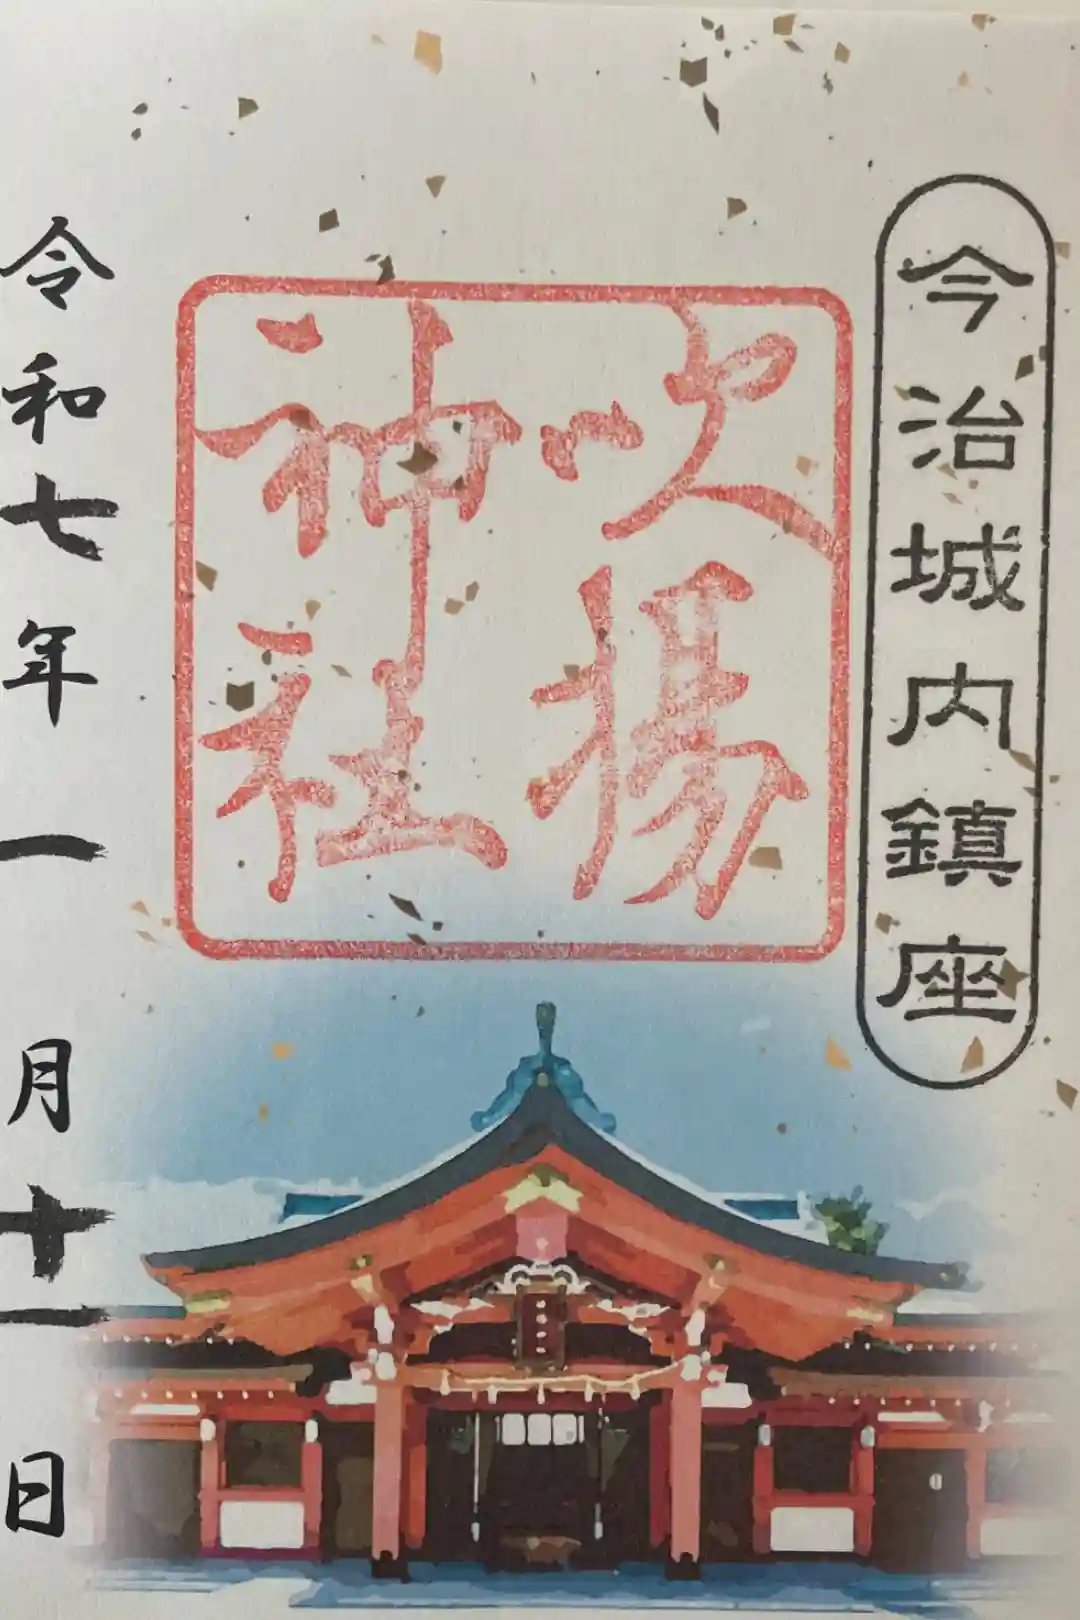 今治城内鎮座
吹揚
神社
令和七年一月十一日